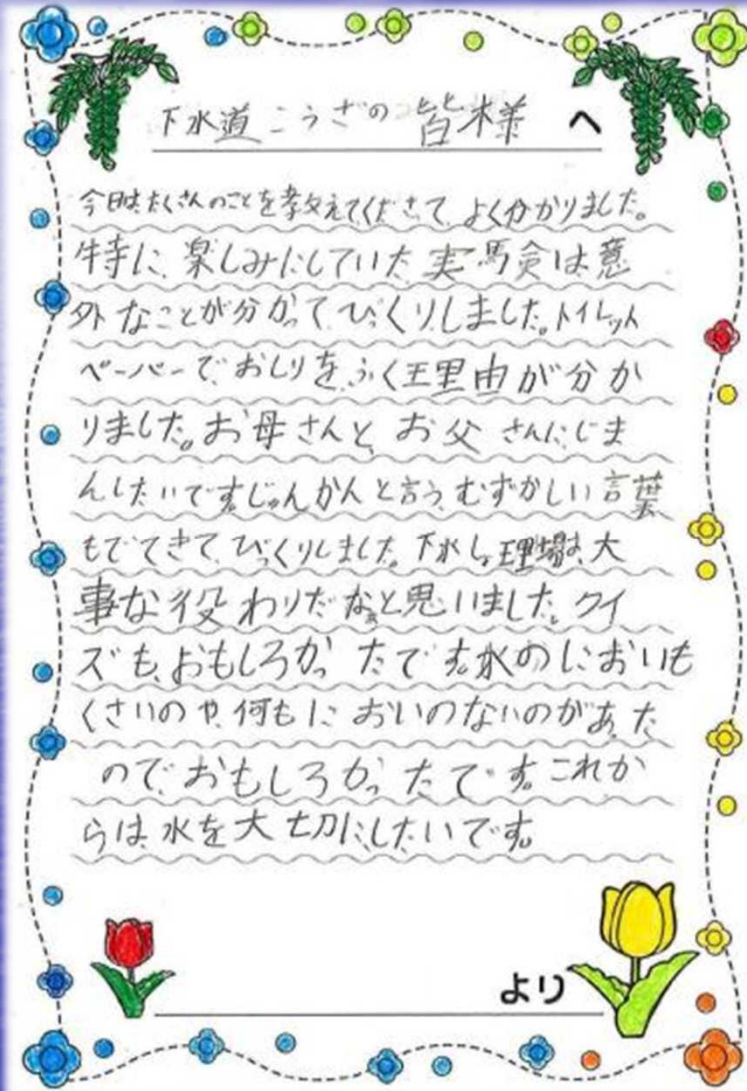 下水道こうざの皆様へ
今日はたくさんのことを教えてくださって、よく分かりました。
特に、楽しみにしていた実験は意
外なことが分かってびっくりしました。トイレット
ペーパーで、おしりをふく理由が分か
りました。お母さんと、お父さんにじま
んしたいです。じゅんかんと言う、むずかしい言葉
もでてきて、びっくりしました。下水しょ理場は、大
事な役わりだなぁと思いました。クイ
ズも、おもしろかったです。水のにおいも
くさいのや、何もにおいのないのがあった
ので、おもしろかったです。これか
らは、水を大切にしたいです。
より